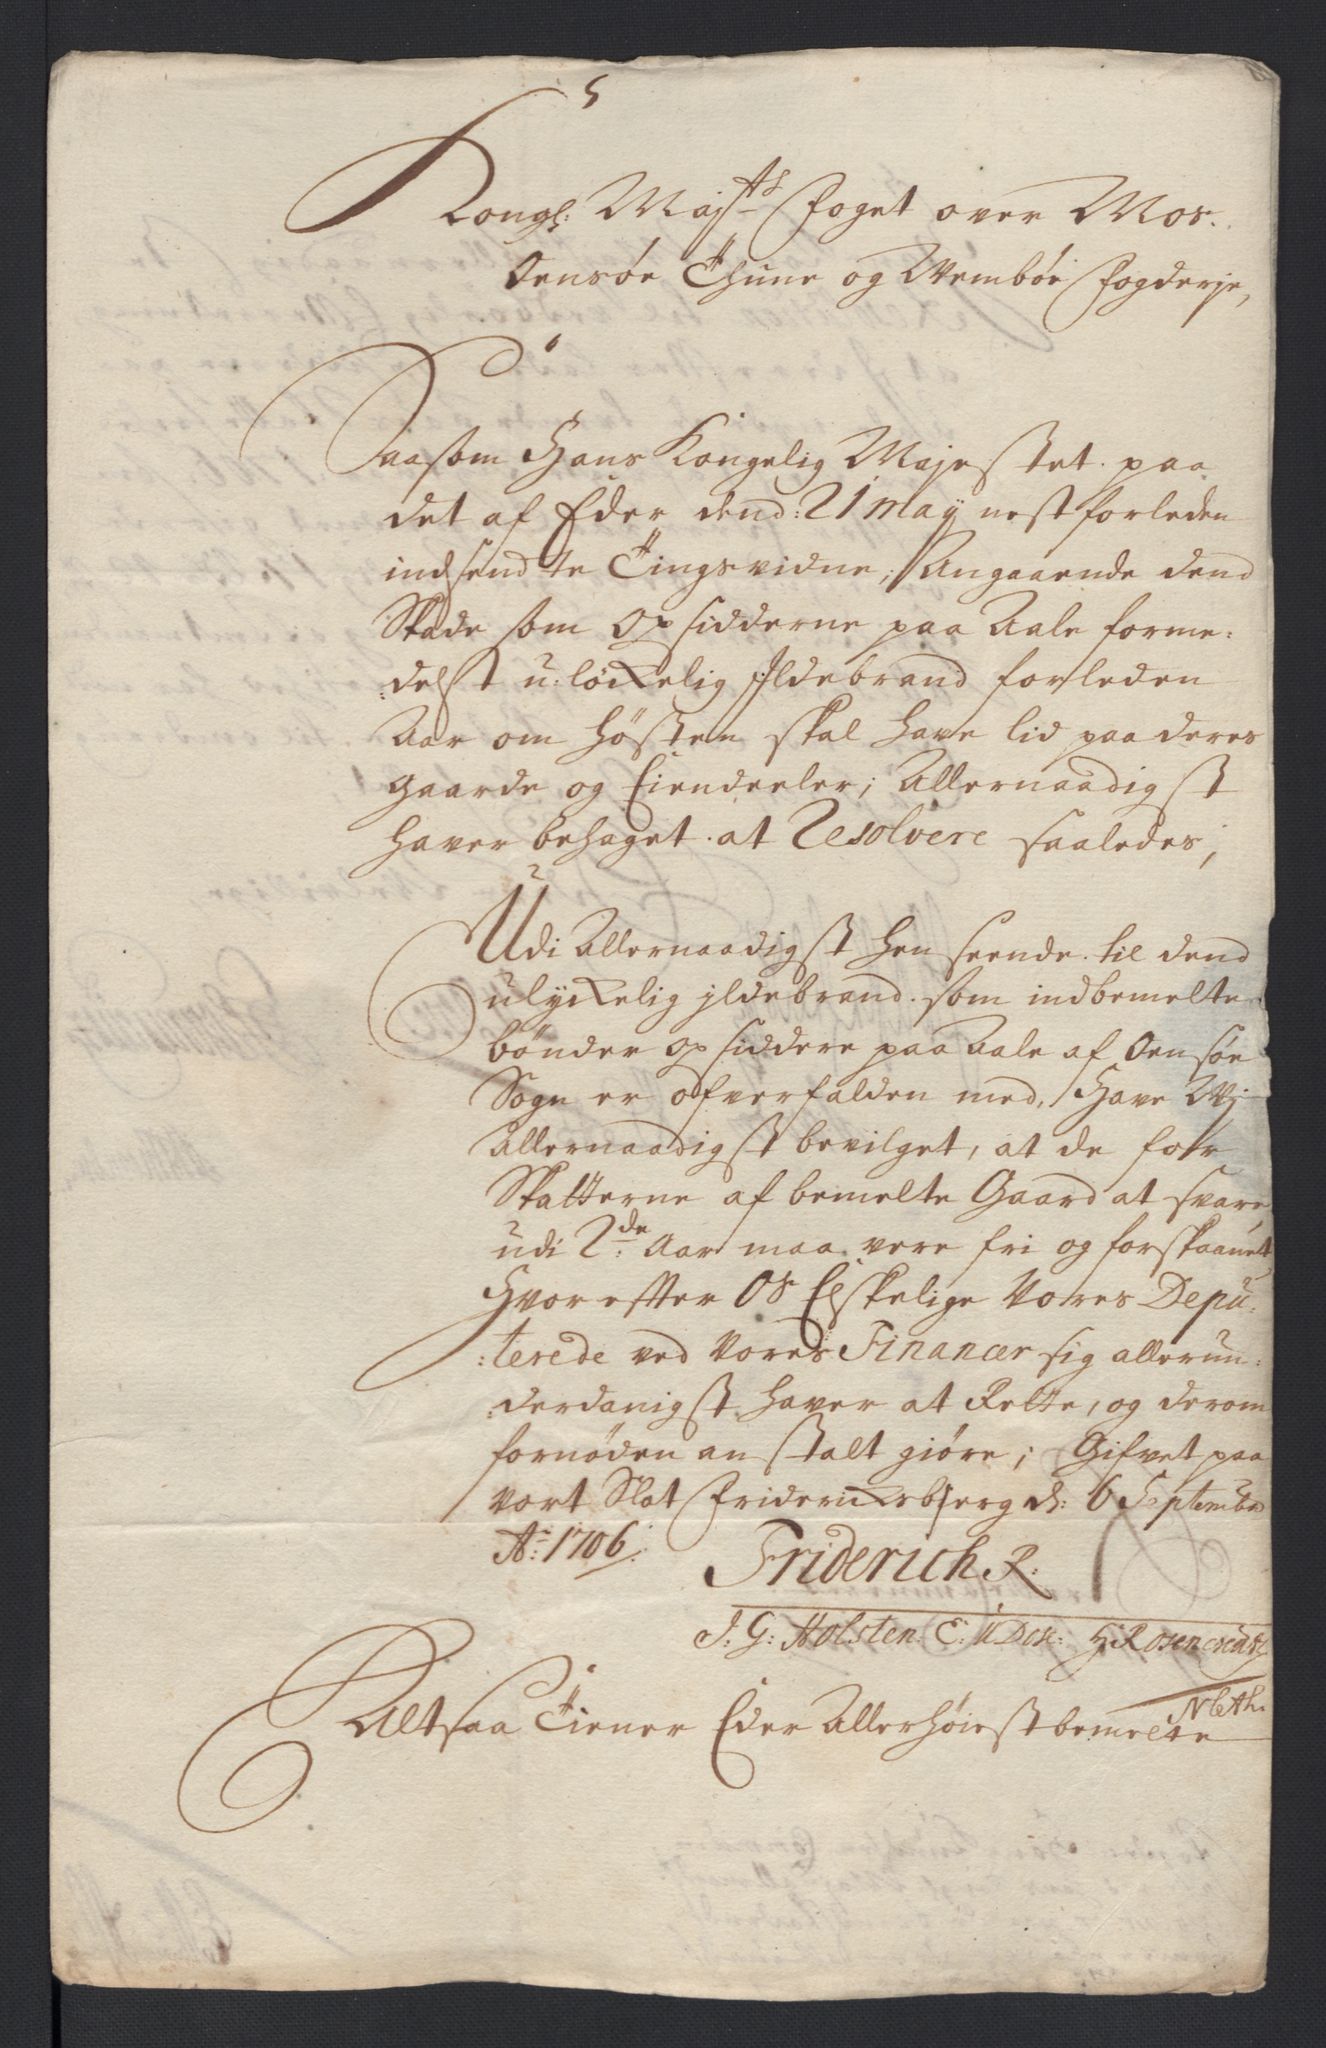 5
Kongl: Maj.ts Foget over Mos.
Oensøe Thune og Wembøe Fogderje,
Saasom Hans Kongelig Majestet paa
det af Eder dend: 21 may nestforleden
indsendte Tingsvidne, Angaaende dend
Skade som Opsidderne paa Aale forme:
:delst u:löckelig Ildebrand forleden
Aar om Høsten skal have lid paa deres
gaarde og Eiendeeler; Allernaadigst
haver behaget at Resolvere saaledes,
Udi Allernaadigst hen seende til dend
ulyckelig jldebrand som indbemelte
bönder opsiddere paa Aale af Oensøe
Sogn er ofverfalden med, Have Wj
Allernaadigst bevilget, at de for
Skatterne af bemelte Gaard at svare
udi 2de: Aar maa vere fri og forskaanet
Hvor efter Os Elskelige Vores Depu:
:terede ved Vores Financer sig allerun:
:derdanigst haver at Rette, og derom
fornøden anstalt giøre; Gifvet paa
vort Slot Fridericksbjerg d: 6 Septembr
Ao: 1706:
Friderich R:
J: G: Holsten C: V: H Rosencrandtz
Altsaa Tiener Eder Allerhøiestbemelte